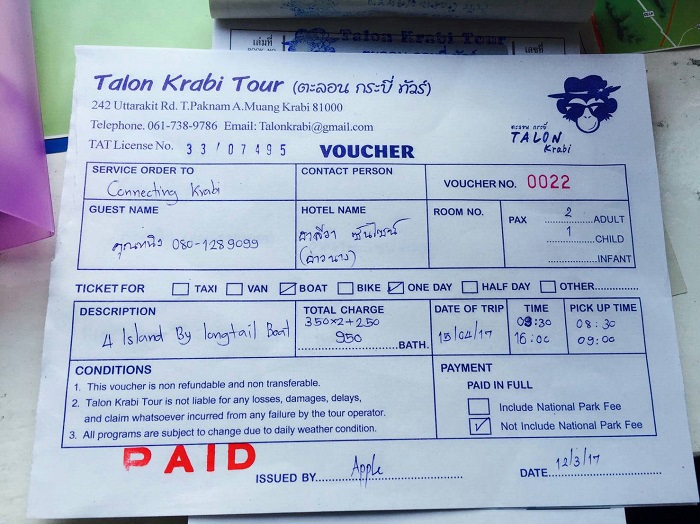 Talon Krabi Tour
Talon Krabi Tour (ตะลอน กระบี่ ทัวร์)
242 Uttarakit Rd. T.Paknam A.Muang Krabi 81000
Telephone. 061-738-9786 Email: Talonkrabi@gmail.com
TAT License No. 33/07495
VOUCHER
ตะลอน กระบี่
TALON
Krabi
SERVICE ORDER TO
Connecting Krabi
CONTACT PERSON
VOUCHER NO. 0022
GUEST NAME
080-1289099
HOTEL NAME
(อ่าวนาง)
ROOM NO.
PAX 2 ADULT
1 CHILD
INFANT
TICKET FOR TAXI VAN BOAT BIKE ONE DAY HALF DAY OTHER
DESCRIPTION
4 Island By longtail Boat
TOTAL CHARGE
350x2+250
950
BATH.
DATE OF TRIP
15/04/17
TIME
:30
16:00
PICK UP TIME
08:30
09:00
CONDITIONS
1. This voucher is non refundable and non transferable.
2. Talon Krabi Tour is not liable for any losses, damages, delays,
and claim whatsoever incurred from any failure by the tour operator.
3. All programs are subject to change due to daily weather condition.
PAYMENT
PAID IN FULL
Include National Park Fee
Not Include National Park Fee
PAID
ISSUED BY Apple
DATE 12/3/17